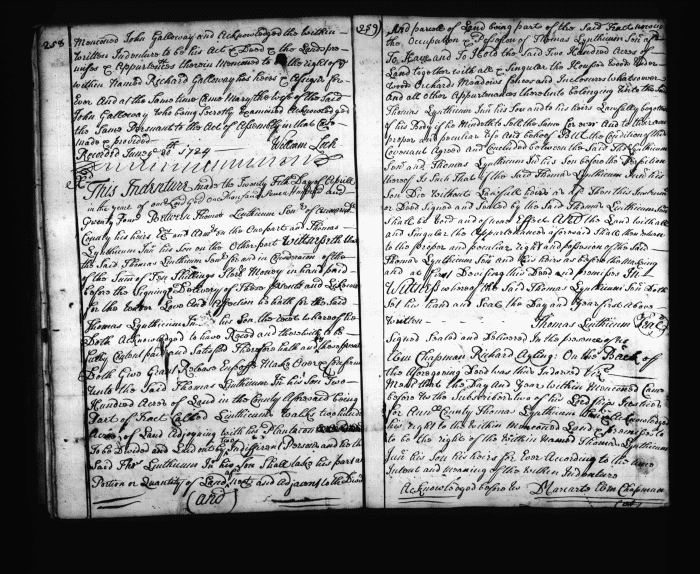 258
Menconed John Galloway and Acknowledged the within
written Indenture to be his Act & Deed & the Lands pre
mises & Appurtences therein Menconed to the right of ye
within Named Richard Galloway his heires & Assigns for
Ever And at the Same time Came Mary the wife of the Said
John Galloway who being Secretly Examined Acknowledged
the Same Persuant to the Act of Assembly in that Case
made & provided
Received June ye 8th 1724 William Lock
This Indenture made the Twenty Day of Aprill
in the year of our Lord God One Thousand Seven Hundred and
Twenty Four Between Thomas Linthicum Senr of Annarundll
County his heires &c and Admrs on the One part and Thomas
Lynthicum Junr his Son on the Other part Wittnesseth that
the Said Thomas Linthicum Senr for and in Consideration of the
of the Sum of Ten Shillings Sterl Money in hand paid
before the Signing & Delivery of These presents and Likewise
for the tender Love And Affection he hath for the Said
Thomas Lynthicum Junr his Son the rect whereof he
Doth Acknowledged to have Reced and therewith to be
fully Content paid and Satisfied Therefore hath and by these presents
Doth Give Grant Release Enfeoffe Make Over & Confirm
unto the Said Thomas Linthicum Junr his Son Two
Hundred Acres of Land in the County Aforesaid being
Part of Tract Called Linthicums Walks two hundred
Acres of Land Adjoyning with his Plantacon
To be Divided and Laid out by two Indifferent Persons and he the
Said Thos Linthicum Junr his Son Shall take his part or
Portion or Quantity of Land next and Adjacent to the Divid
(and)
259
And parcell of Land being part of the Said Tract now in
the Occupation & Possession of Thomas Lynthicum Son afsd
To Have and To Hold the said Two Hundred Acres of
Land together with all & Singular the Houses Woods Under
wood Orchard Meadows fences and Inclosures whatsoever
And all other Appurtenances thereunto belonging Unto the Said
Thomas Lynthicum Junr his Son and to his heirs Lawfully begotten
of his Body if he Mindeth to Sell the Same for ever And to their own
proper and peculiar Use and behoof But the Condition of this
Covenant Agreed and Concluded between the Said Thos Lynthicum
Senr and Thomas Lynthicum Junr his Son before the Perfection
thereof is Such that if the Said Thomas Lynthicum Junr his
Son Die Without Lawfull heires as afsd Then this Instrument
or Deed Signed and Sealed by the Said Thomas Lynthicum Senr
Shall be Void and of none Effect And the Land with all
and Singular the Appurtenances aforesaid Shall then return
to the proper and peculiar right and possession of the Said
Thomas Lynthicum Senr and his heires as before the Making
and at first Devising this Deed and premises In
Wittness whereof the Said Thomas Lynthicum Senr Doth
Set his hand and Seal the Day and Year first above
written Thomas Linthicum Seal
Signed Sealed and Delivered In the presence of
Wm Chapman Richard Ayling: On the Back of
the Aforegoing Deed was this Indorsed Vizt
Memd that the Day and Year within Menconed Came
before Us the Subscribers two of his Ldships Justices
for Ann County Thomas Lynthicum Acknowledged
his right to the Within Menconed Land & premises to
to be the right of the Within Named Thomas Lynthicum
Junr his Son his heires for Ever According to the true
Intent and Meaning of the Within Indenture
Acknowledged before Us D Mariarte Wm Chapman